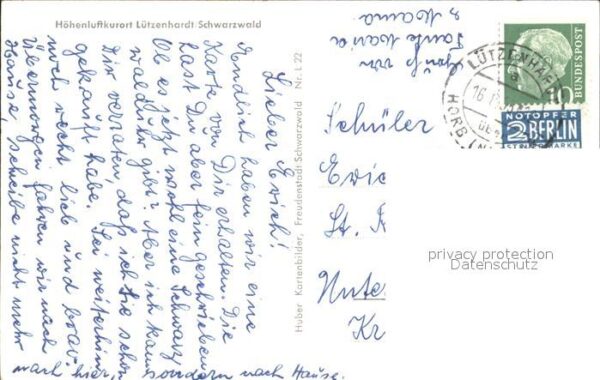 Höhenluftkurort Lützenhardt Schwarzwald
Lieber Erich!
Endlich haben wir eine
Karte von Dir erhalten. Die
hast Du aber fein geschrieben.
Ob es jetzt wohl eine Schwarz-
walduhr gibt? Aber ich kann
Dir verraten, daß ich sie schon
gekauft habe. Sei weiterhin
noch recht lieb und brav.
Übermorgen fahren wir nach
Hause, schreibe nicht mehr
nach hier, sondern nach Hause.
Gruß von
Tante
u. Mama
Huber Kartenbilder, Freudenstadt Schwarzwald Nr. L 22
Schüler
Eric
St. A
Kr
LÜTZENHARDT
HORB (N
16
10
DEUTSCHE BUNDESPOST
NOTOPFER
2 BERLIN
STEUERMARKE
privacy protection
Datenschutz